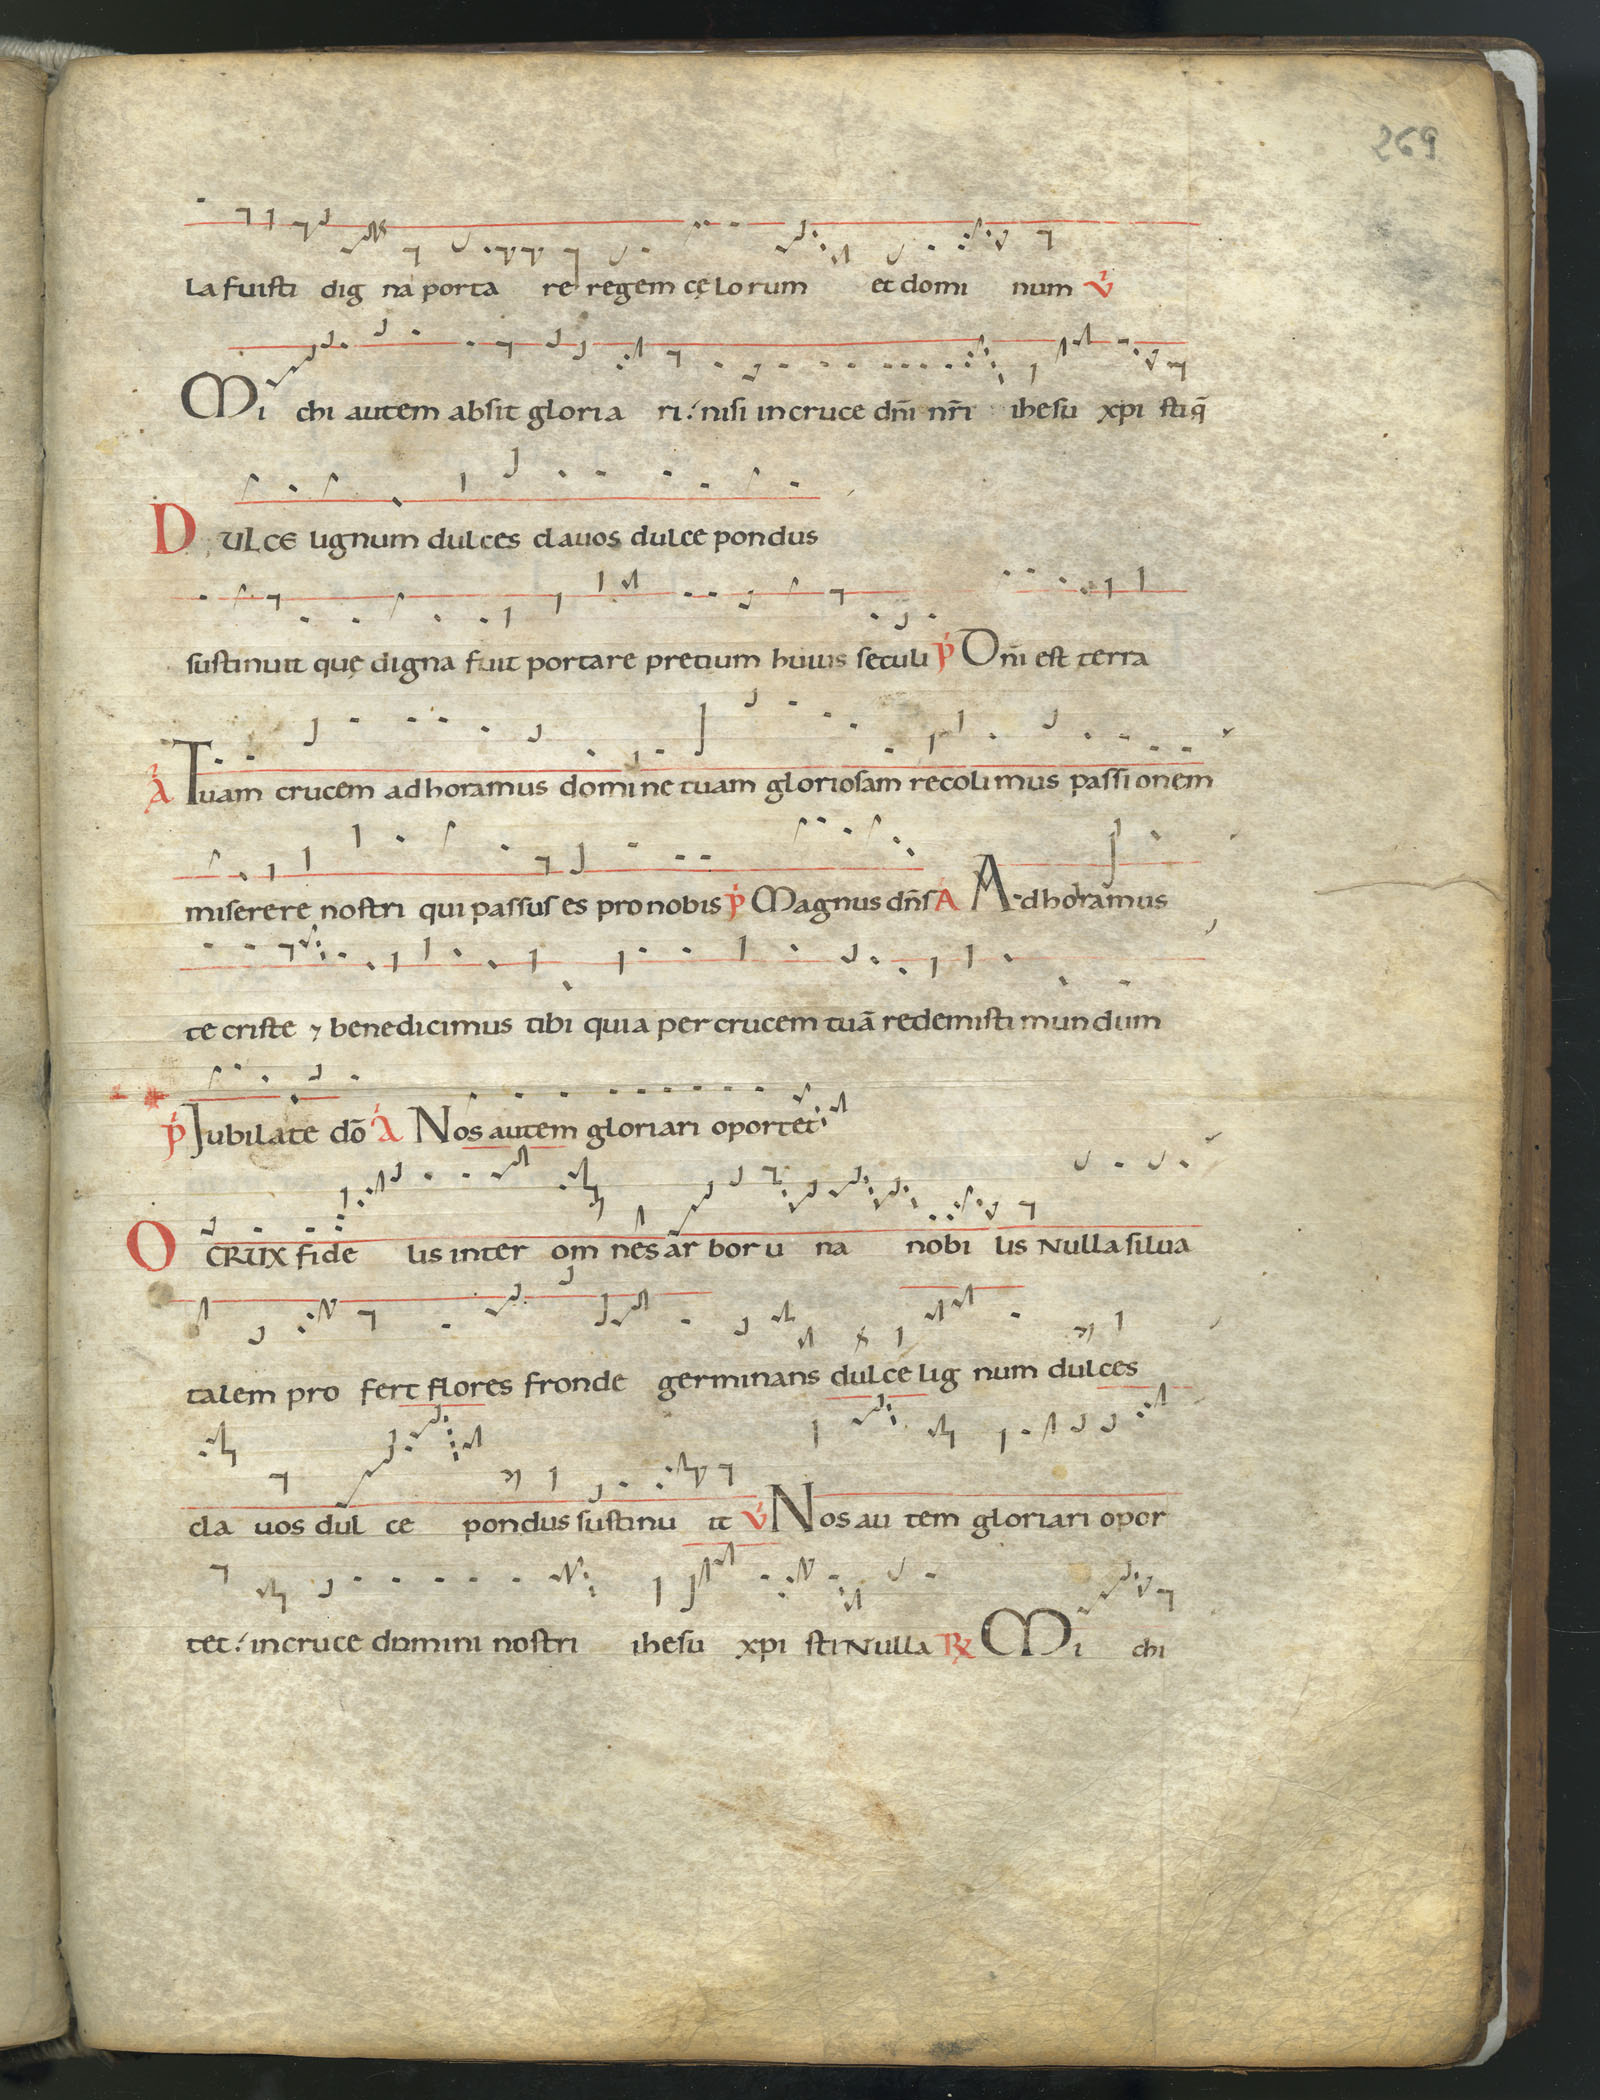 269
la fuisti dig na porta re regem cęlorum et domi num V
Mi chi autem absit gloria ri: nisi in cruce dñi nr̃i ihesu xpi sti q̃
Dulce lignum dulces clauos dulce pondus
sustinuit quę digna fuit portare pretium huius seculi P Dñi est terra
A Tuam crucem adhoramus domine tuam gloriosam recolimus passionem
miserere nostri qui passus es pro nobis P Magnus dñs A Adhoramus
te criste ⁊ benedicimus tibi quia per crucem tuā redemisti mundum
P Jubilate dō A Nos autem gloriari oportet
O crux fide lis inter om nes ar boru na nobi lis nulla silua
talem pro fert flores fronde germinans dulce lig num dulces
cla uos dul ce pondus sustinu it V Nos au tem gloriari opor
tet: in cruce domini nostri ihesu xpi sti Nulla R Mi chi